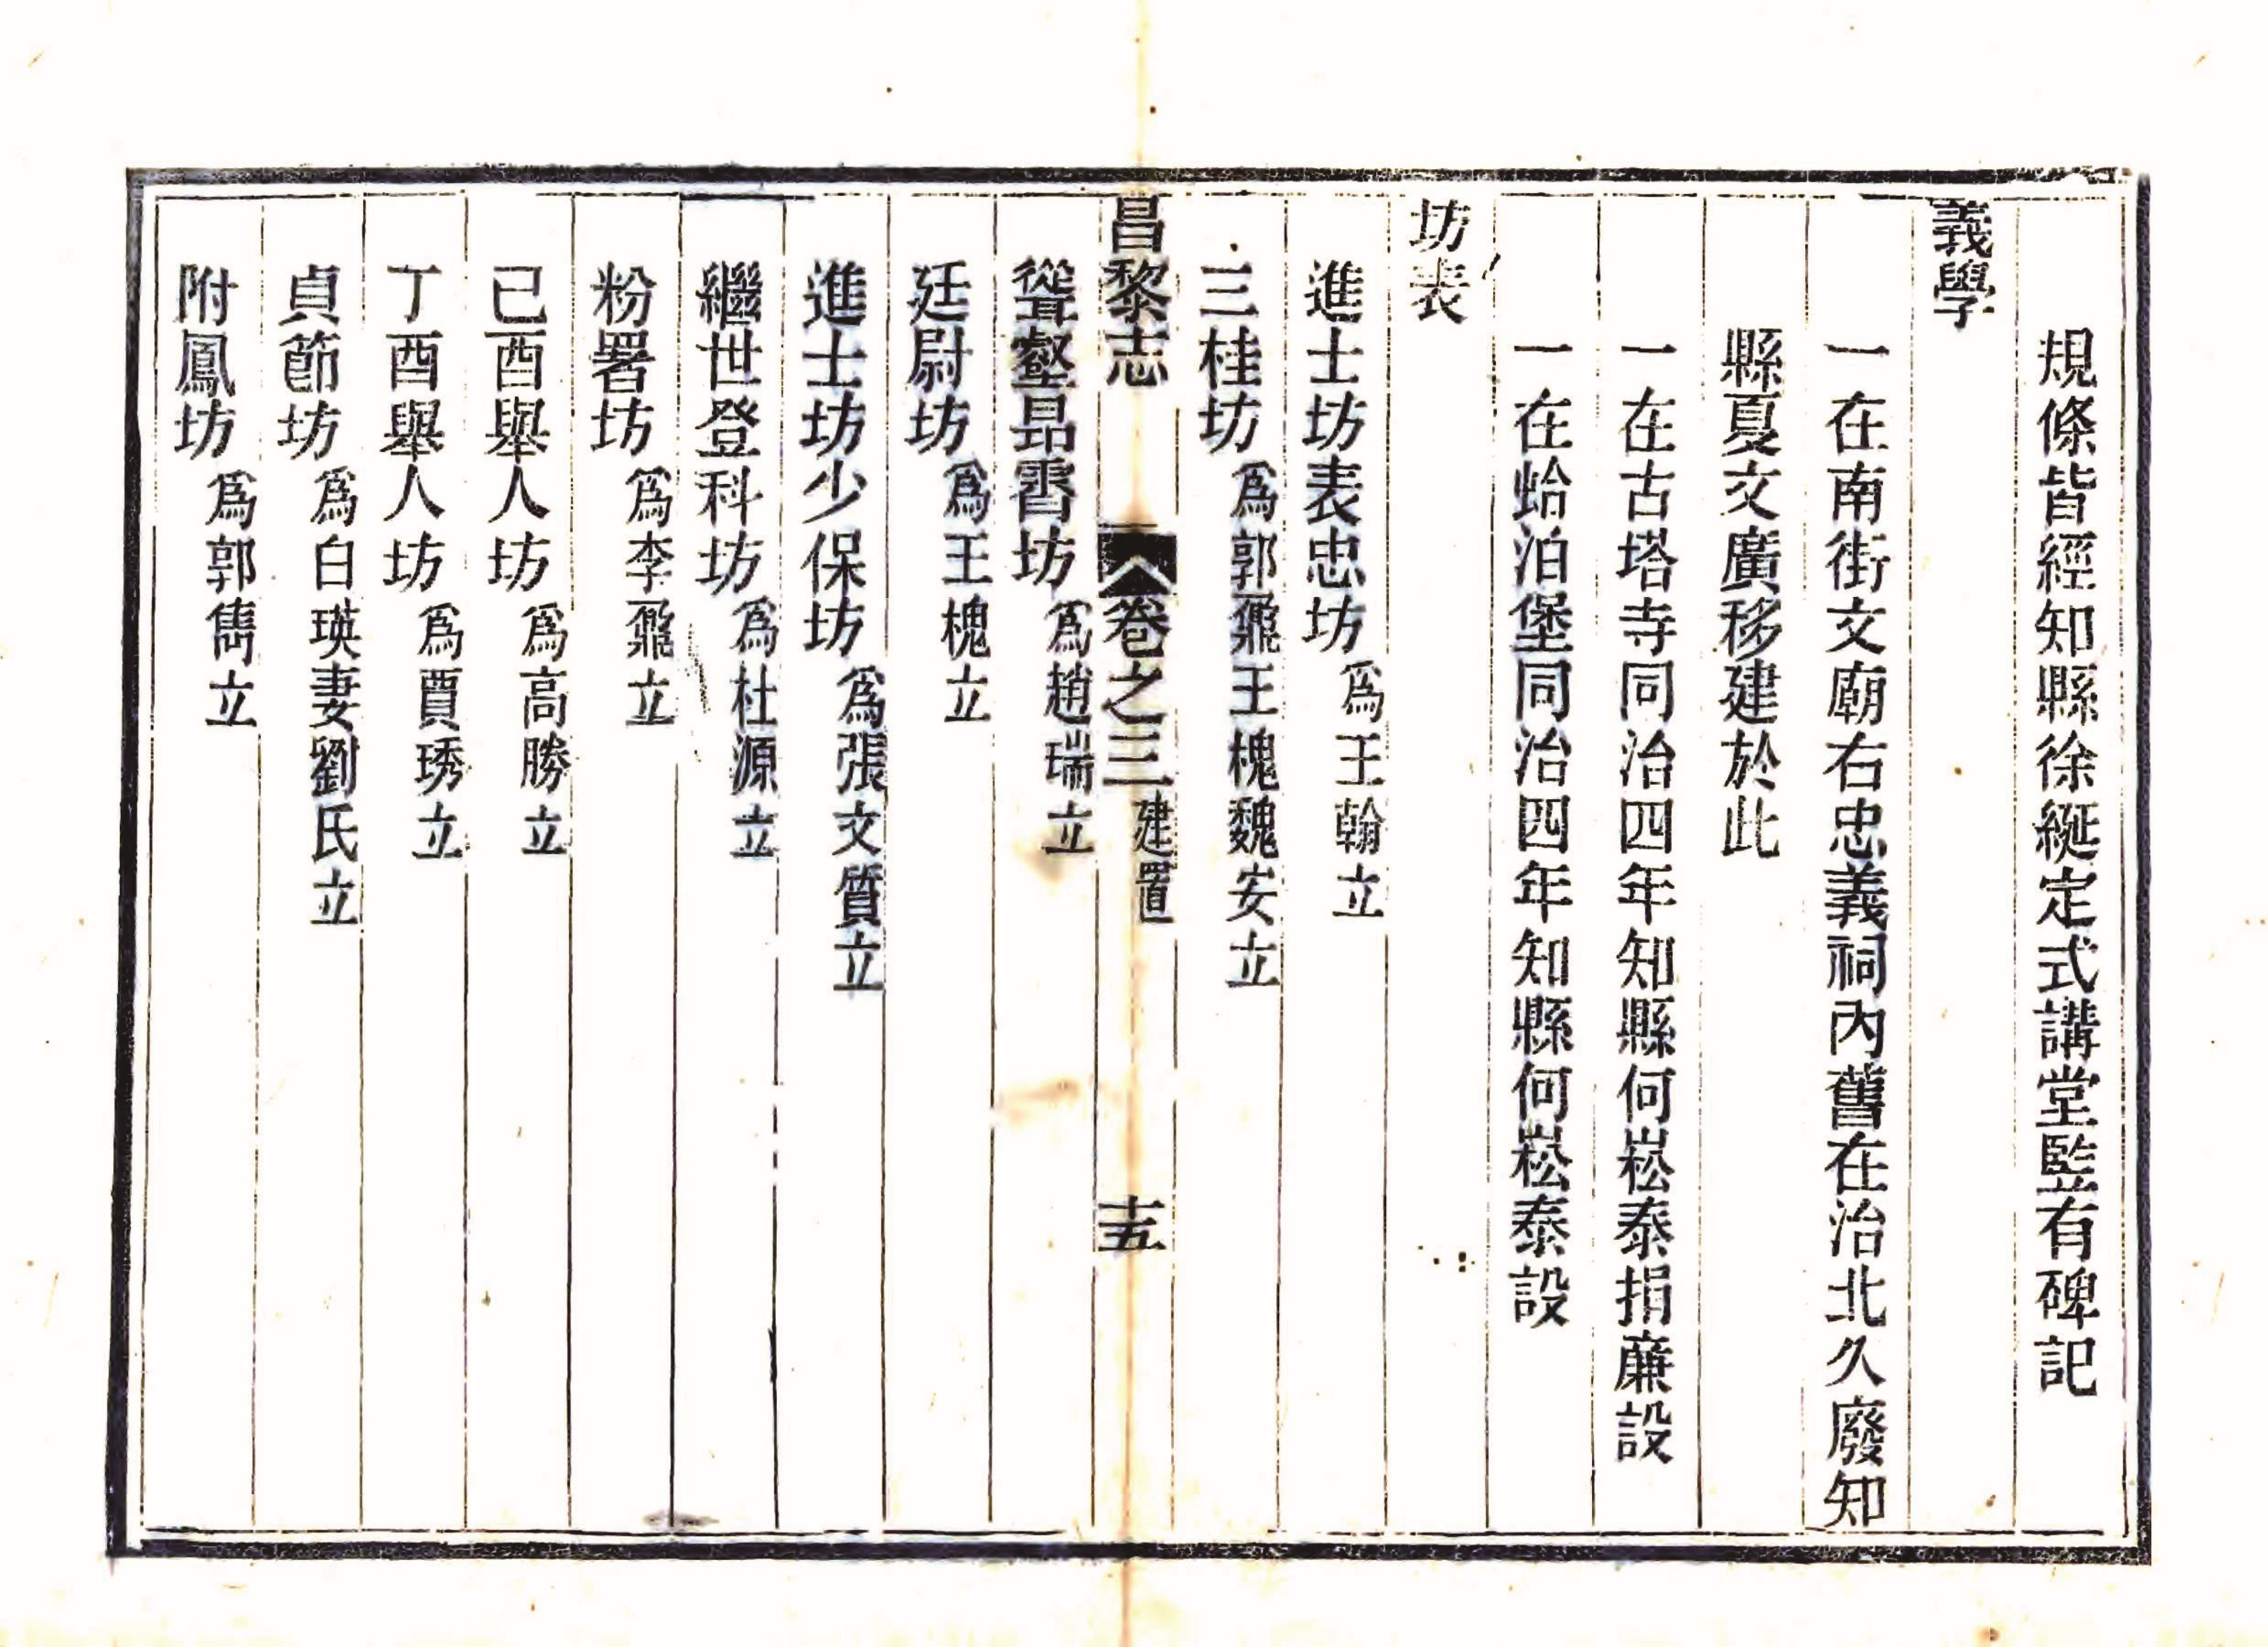 規條皆經知縣徐綖定式講堂監有碑記
義學
一在南街文廟右忠義祠內舊在治北久廢知
縣夏文廣移建於此
一在古塔寺同治四年知縣何崧泰捐廉設
一在蛤泊堡同治四年知縣何崧泰設
坊表
進士坊表忠坊爲王翰立
三桂坊爲郭鼐王槐魏安立
昌黎志 卷之三 建置 十五
聳壑昂霄坊爲趙瑞立
廷尉坊爲王槐立
進士坊少保坊爲張文質立
繼世登科坊爲杜源立
粉署坊爲李鼐立
已酉舉人坊爲高勝立
丁酉舉人坊爲賈琇立
貞節坊爲白瑛妻劉氏立
附鳳坊爲郭雋立